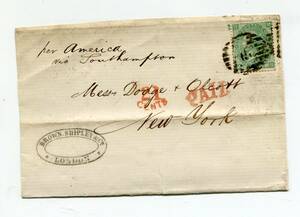 per America
via Southampton
Messrs Dodge & Olcott
CENTS
PAID
New York
BROWN, SHIPLEY & Co
LONDON